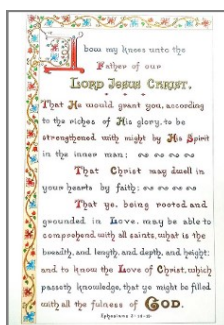 I bow my knees unto the
Father of our
LORD JESUS CHRIST.
That He would grant you, according
to the riches of His glory, to be
strengthened with might by His Spirit
in the inner man;
That Christ may dwell in
your hearts by faith;
That ye, being rooted and
grounded in Love, may be able to
comprehend with all saints, what is the
breadth, and length, and depth, and height;
and to know the Love of Christ, which
passeth knowledge, that ye might be filled
with all the fulness of GOD.